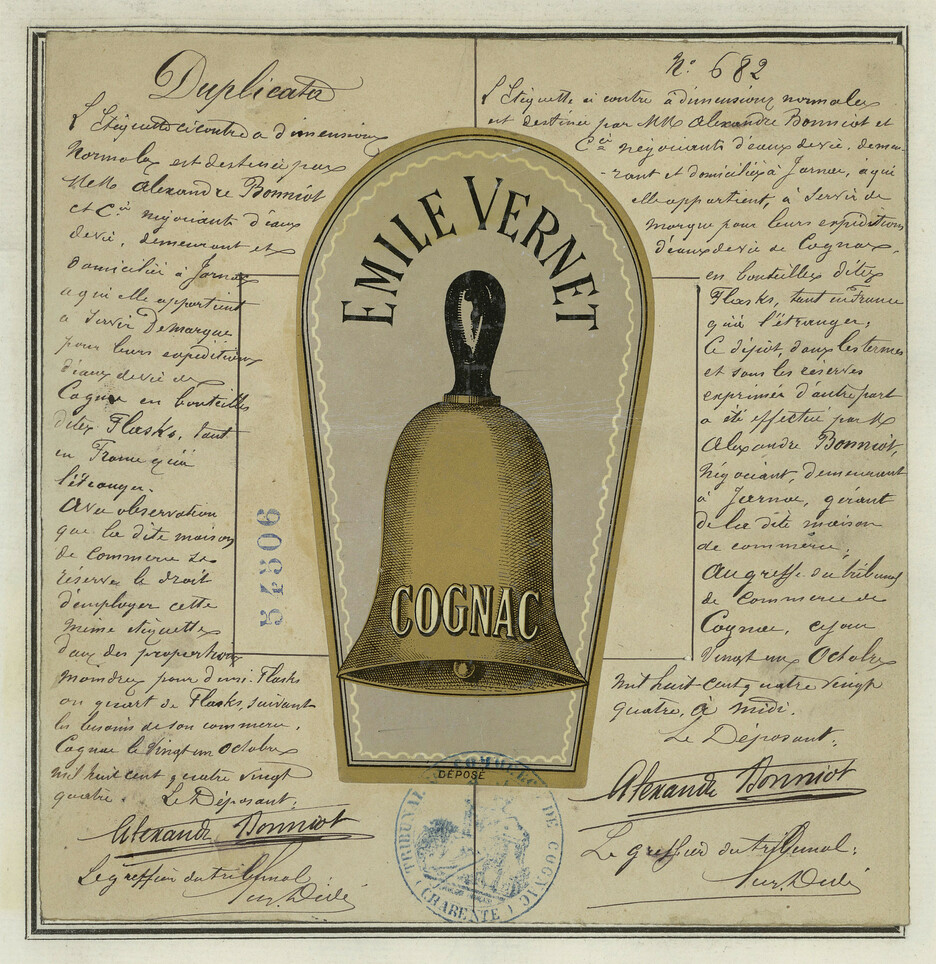 Duplicata
L'Etiquette ci contre à dimensions
Normales est destinée par
MM Alexandre Bonniot
et Cie négociants d'eaux
de vie, demeurant et
domiciliés à Jarnac
a qui elle appartient
a servir De marque
pour leurs expéditions
d'eaux de vie de
Cognac en bouteilles
dites Flasks, tant
en France qu'à
l'étranger.
Avec observation
que la dite maison
de Commerce se
réserve le droit
d'employer cette
même étiquette
dans des proportions
moindres pour demi-Flasks
ou quart de Flasks, suivant
les besoins de son commerce.
Cognac le Vingt un Octobre
mil huit cent quatre vingt
quatre. Le Déposant,
Alexandre Bonniot
Le greffier du tribunal
N° 682
L'Etiquette ci contre à dimensions normales
est destinée par MM Alexandre Bonniot et
Cie négociants d'eaux de vie, demeu-
-rant et domiciliés à Jarnac, a qui
elle appartient, à servir de
marque pour leurs expéditions
d'eaux de vie de Cognac,
en bouteilles dites
Flasks, tant en France
qu'à l'étranger,
Ce dépôt, dans les termes
et sous les réserves
exprimés d'autre part
a été effectué par M
Alexandre Bonniot,
Négociant, demeurant
à Jarnac, gérant
de la dite maison
de commerce,
Au greffe du tribunal
de Commerce de
Cognac, ce jour
Vingt un Octobre
mil huit cent quatre vingt
quatre, à midi.
Le Déposant,
Alexandre Bonniot
Le greffier du tribunal,
EMILE VERNET
COGNAC
DÉPOSÉ
54506
TRIBUNAL DE COMMERCE DE COGNAC
(CHARENTE)